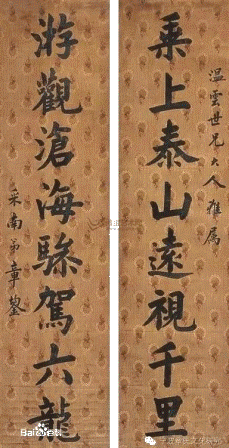 温雲世兄大人雅属
乘上泰山遠視千里
游觀滄海驂駕六龍
采南弟章鋆
Bai百科